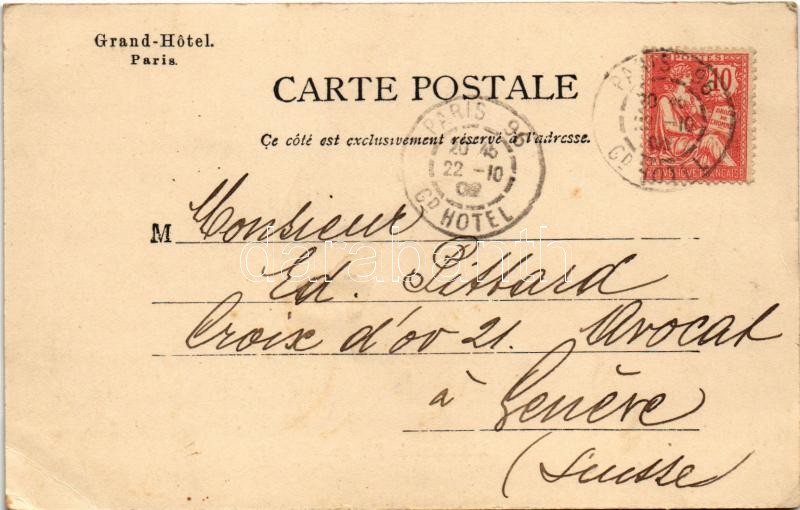 Grand-Hôtel.
Paris.
CARTE POSTALE
Ce côté est exclusivement réservé à l'adresse.
POSTES
10
DROITS DE L'HOMME
REPUBLIQUE FRANÇAISE
PARIS 96
22 -10
02
GD HOTEL
PARIS 96
-10
GD
M Monsieur
Ed. Pittard
Croix d'or 21. Avocat
à Genève
(Suisse)
darabanth